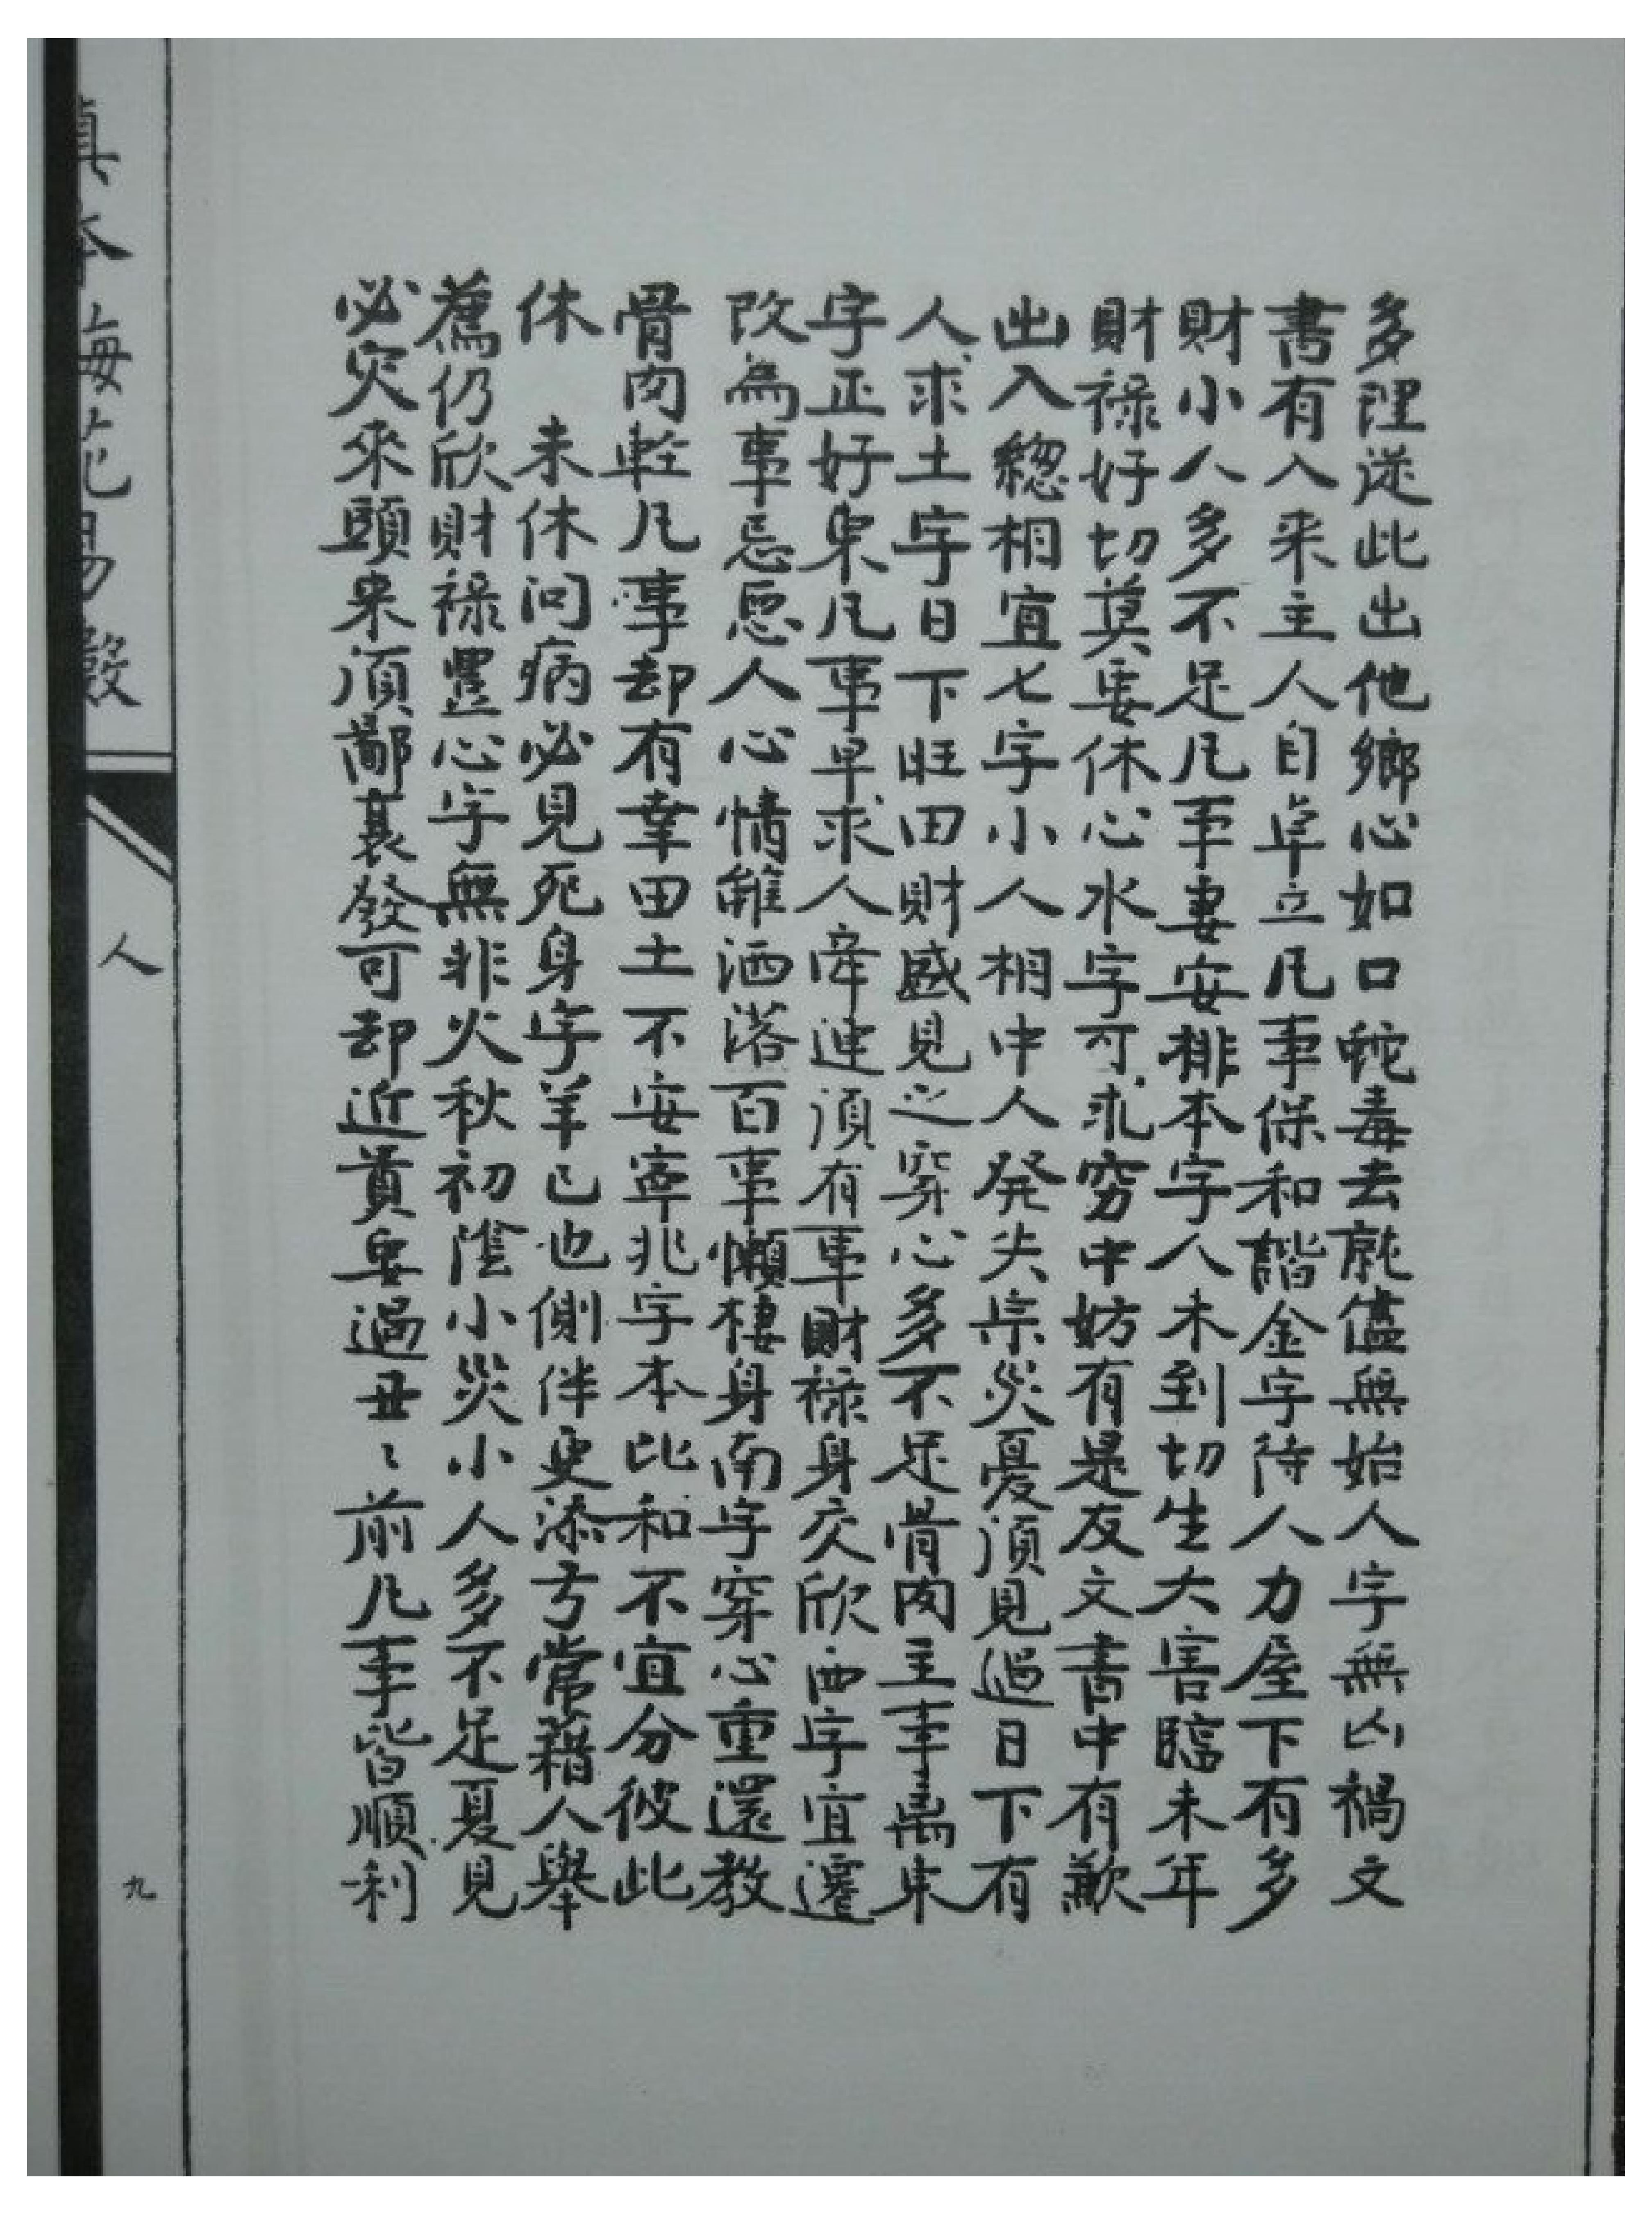 多理送此出他鄉心如口蛇毒去就儘無始人字無凶禍文
書有入来主人自卓立凡事保和諧金字待人力屋下有多
財小人多不足凡事妻安排本字人未到切生大害臨未年
財禄好切莫要休心水字可求窮中妨有是友文書中有歉
出入緫相宜七字小人相中人発失宗災憂須見過日下有
人求土字日下旺田財盛見之穿心多不足骨肉主事萬東
字正好東凡事早求人牵連須有事財禄身交欣西字宜遷
改為事忌惡人心情雖洒落百事懶棲身南字穿心重還教
骨肉輕凡事却有幸田土不安寧兆字本比和不宜分彼此
休 未休问病必見死身字羊已也側伴更添亏常藉人舉
薦仍欣財禄豐心字無非火秋初陰小災小人多不足夏見
必灾來頭来須鄙裏發可却近貴要過丑丶前凡事皆順利
真本梅花易數
人
九